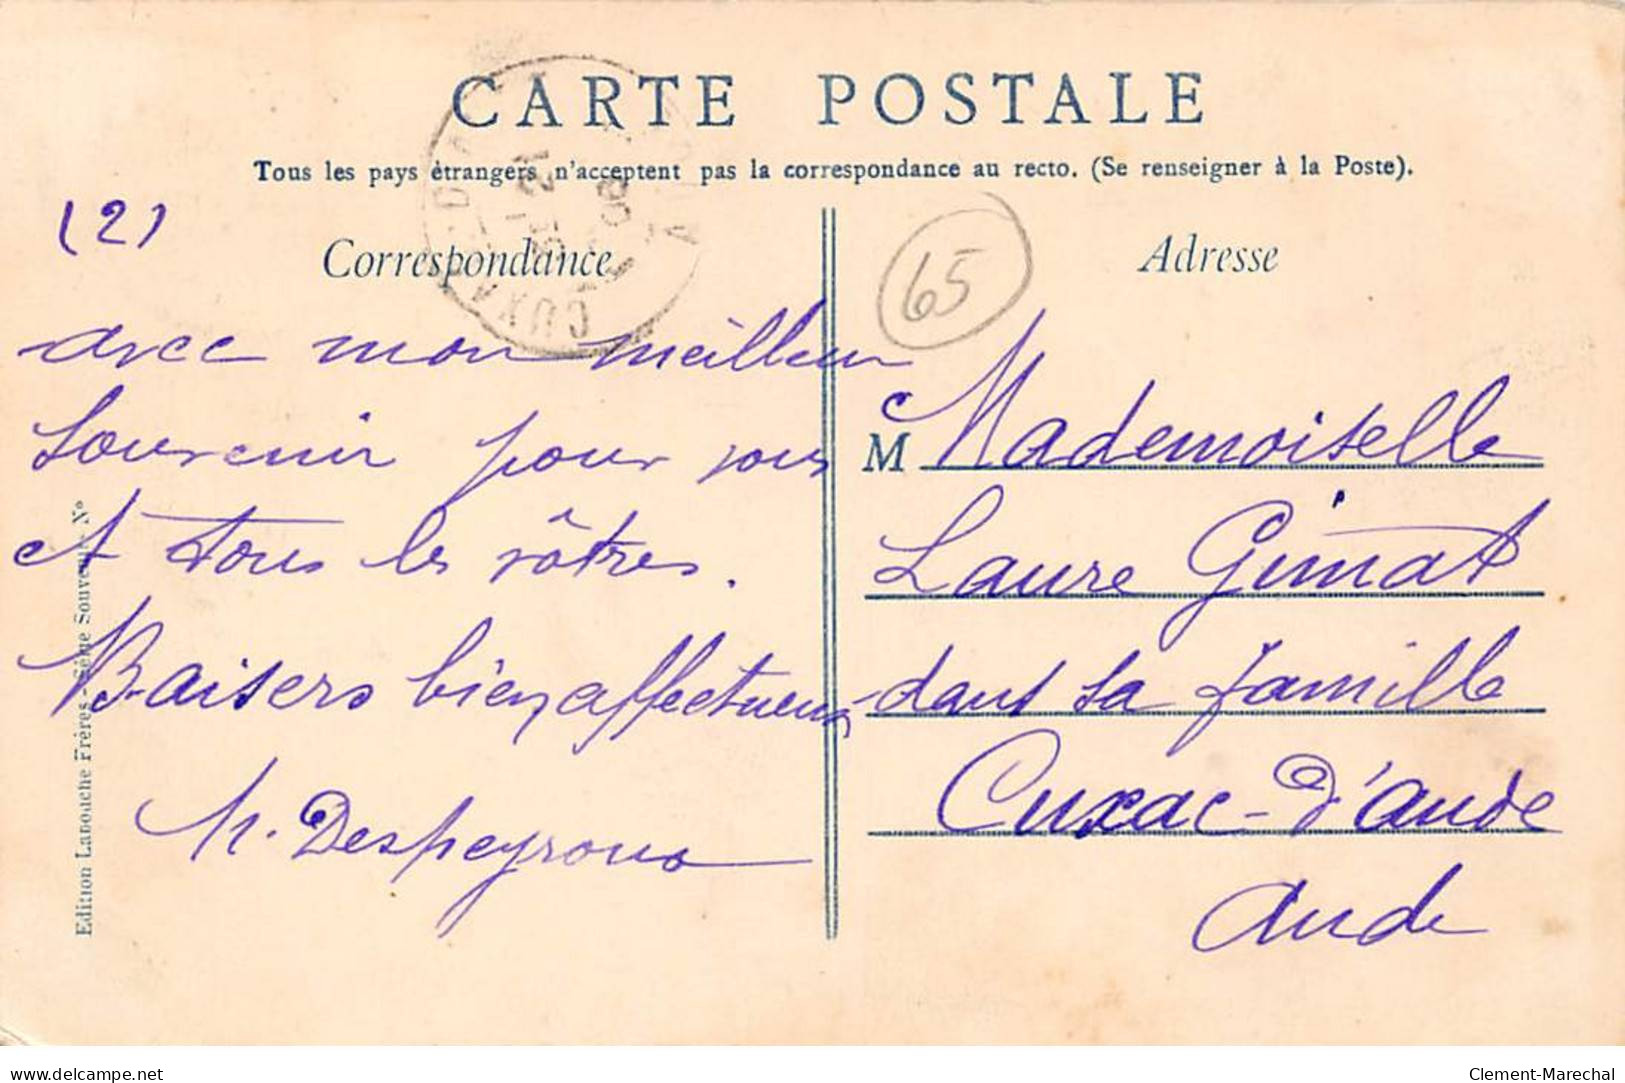 CARTE POSTALE
Tous les pays étrangers n'acceptent pas la correspondance au recto. (Se renseigner à la Poste).
(2)
Correspondance
avec mon meilleur
Souvenir pour vous
et tous les vôtres.
Baisers bien affectueux
Despeyrous
65
Adresse
M Mademoiselle
Laure Gimat
dans sa famille
Cuxac-d'aude
Aude
Edition Labouche Frères
N°
CUXAC D'AUDE
delcampe.net
Clement-Marechal